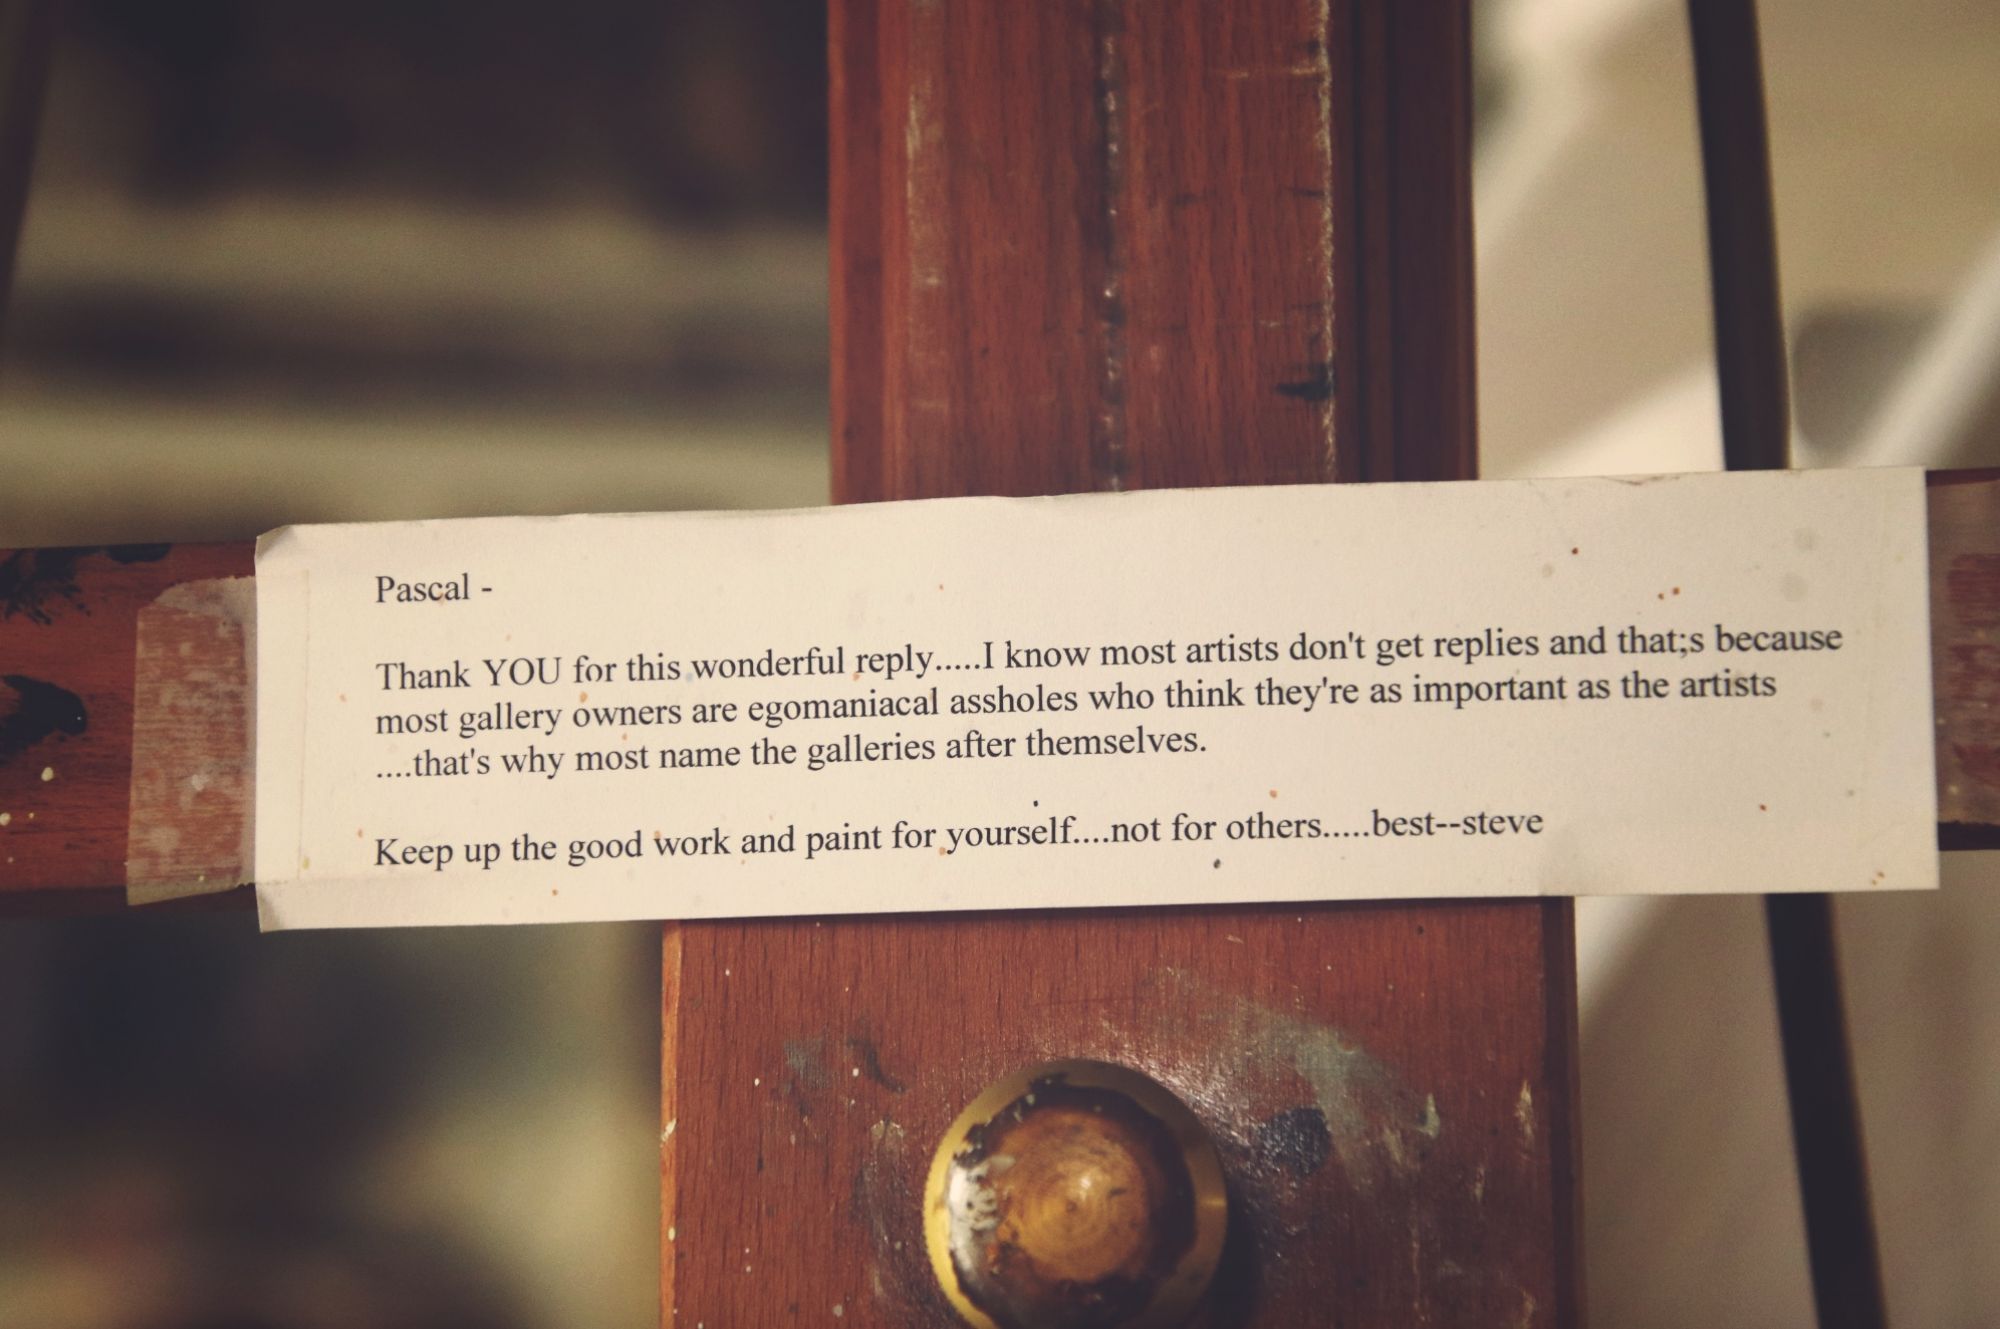 Pascal -
Thank YOU for this wonderful reply.....I know most artists don't get replies and that;s because
most gallery owners are egomaniacal assholes who think they're as important as the artists
....that's why most name the galleries after themselves.
Keep up the good work and paint for yourself....not for others.....best--steve